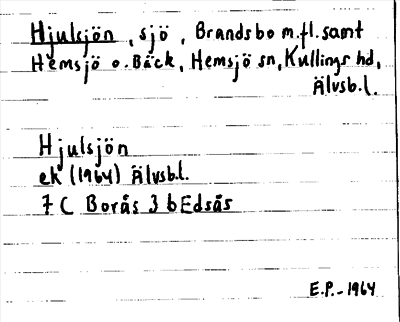 Hjulsjön, sjö, Brandsbo m.fl. samt
Hemsjö o. Bäck, Hemsjö sn, Kullings hd,
Älvsb.l.
Hjulsjön
ek (1964) Älvsb.l.
7 C Borås 3 b Edsås
E.P. - 1964